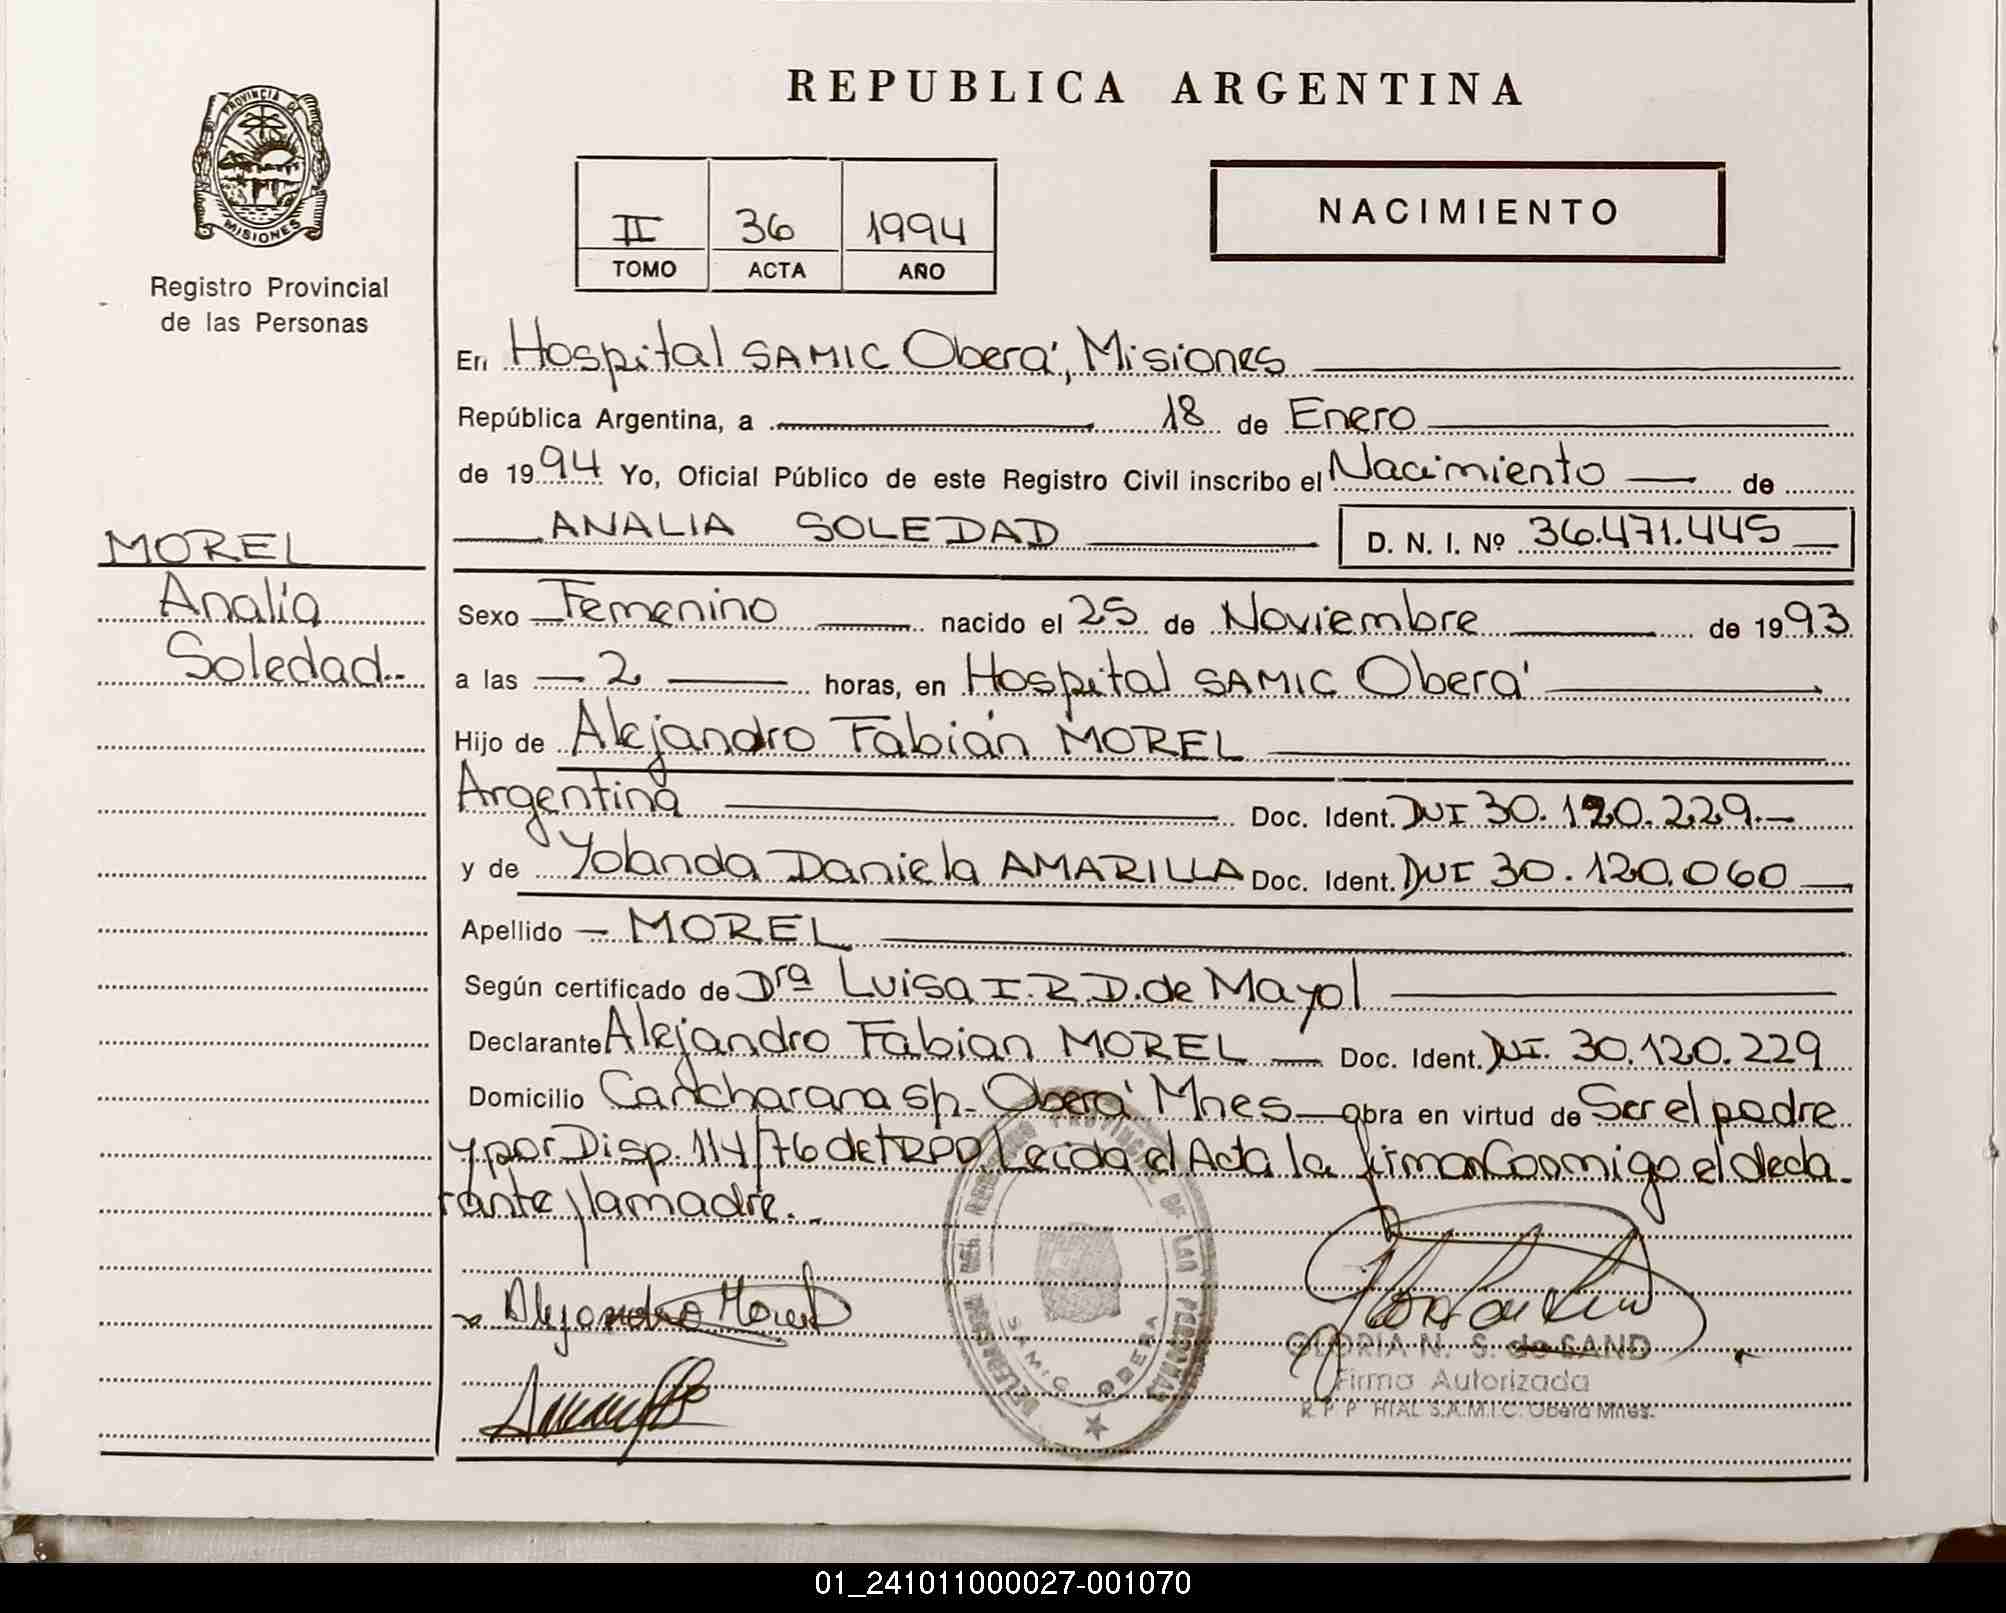 REPUBLICA ARGENTINA
PROVINCIA DE
MISIONES
Registro Provincial
de las Personas
II 36 1994
TOMO ACTA AÑO
NACIMIENTO
En Hospital SAMIC Oberá, Misiones
República Argentina, a 18 de Enero
de 1994 Yo, Oficial Público de este Registro Civil inscribo el Nacimiento de
ANALIA SOLEDAD D. N. I. Nº 36.471.445
MOREL
Analía
Soledad.-
Sexo Femenino nacido el 25 de Noviembre de 1993
a las 2 horas, en Hospital SAMIC Oberá
Hijo de Alejandro Fabián MOREL
Argentina Doc. Ident. DNI 30.120.229.-
y de Yolanda Daniela AMARILLA Doc. Ident. DNI 30.120.060
Apellido MOREL
Según certificado de Drª Luisa I.R.D. de Mayol
Declarante Alejandro Fabian MOREL Doc. Ident. DNI. 30.120.229
Domicilio Cancharana s/n- Oberá Mnes obra en virtud de Ser el padre
y por Disp. 114/76 del RPP. Leída el Acta la firman Conmigo el decla-
rante y la madre.
Alejandro Morel
PROVINCIAL DE LAS PERSONAS
SAMIC OBERA
GLORIA N. S. de SAND
Firma Autorizada
R. P. P. HTAL S.A.M.I.C. Oberá Mnes.
01_241011000027-001070